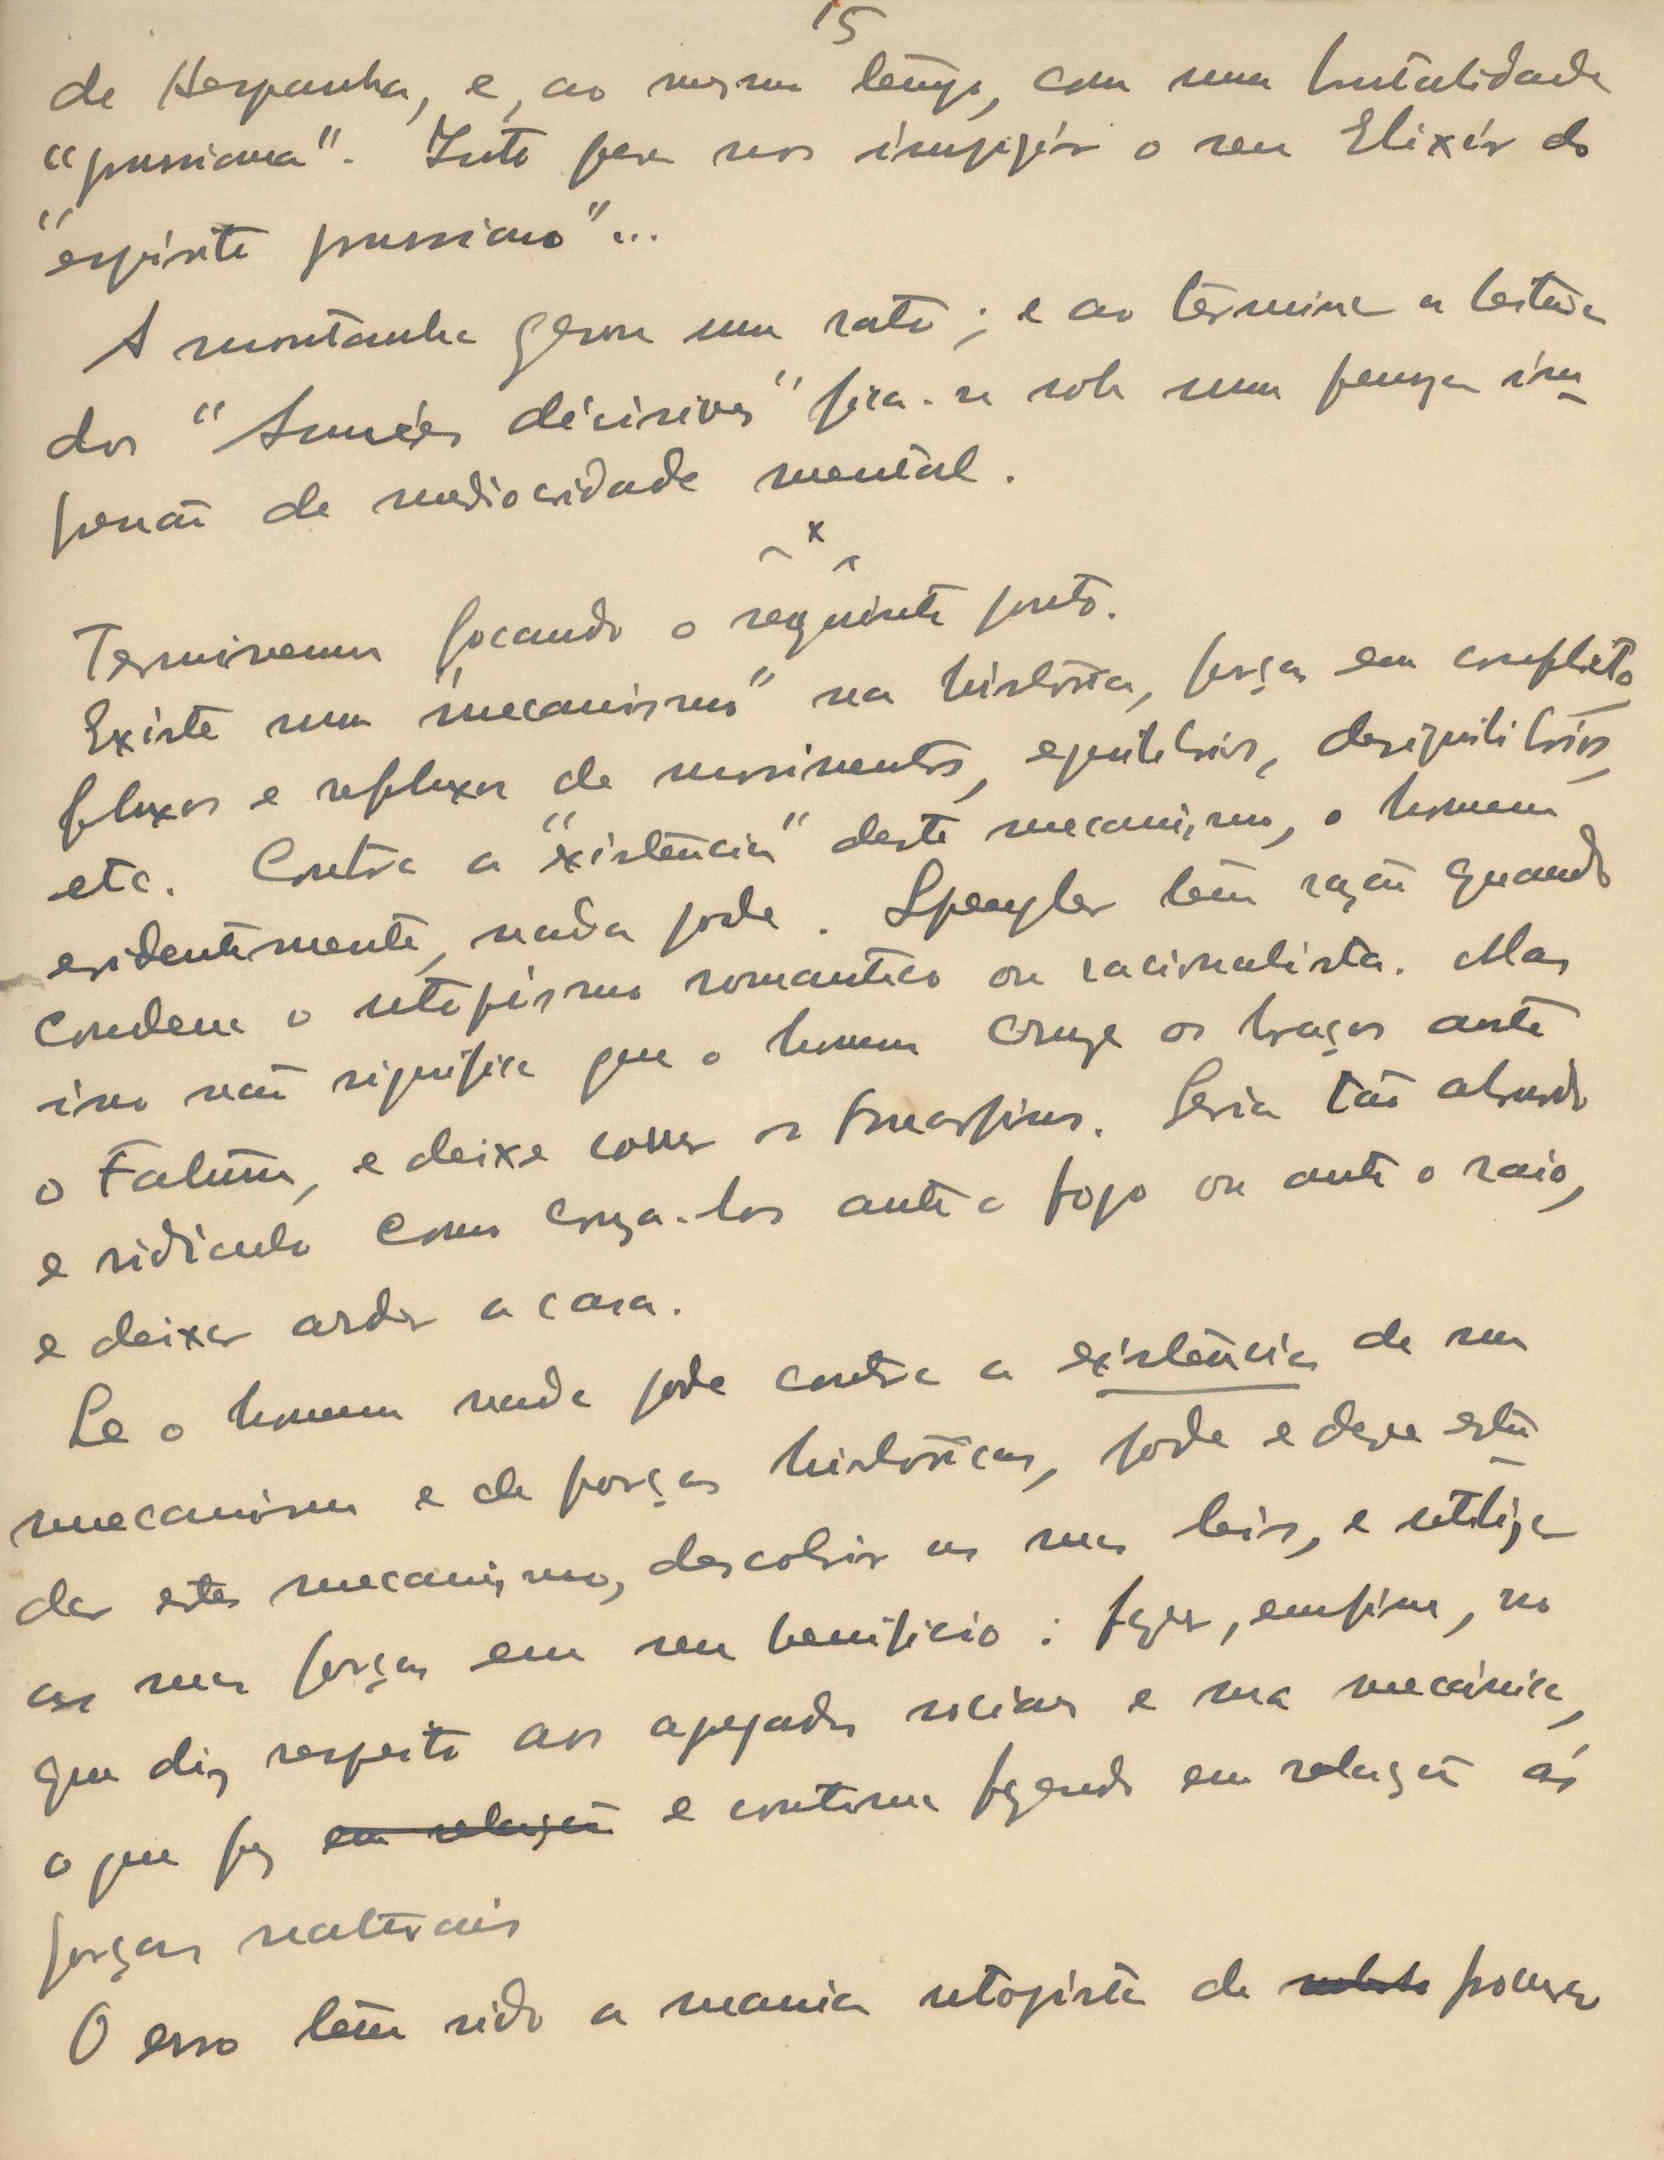 15
de Hespanha, e, ao mesmo tempo, com uma brutalidade
"prussiana". Tudo para nos impingir o seu Elixír do
"espírito prussiano"...
A montanha gerou um rato; e ao término a leitura
dos "Années décisives" fica-se sob uma penosa im-
pressão de mediocridade mental.
x
Terminemos focando o seguinte ponto.
Existe um "mecanismo" na história, forças em conflito,
fluxos e refluxos de movimentos, equilibrios, desiquilibrios,
etc. Contra a "existência" deste mecanismo, o homem
evidentemente, nada pode. Spengler tem razão quando
condena o utopismo romantico ou racionalista. Mas
isso não significa que o homem cruze os braços ante
o Fatum, e deixe correr o marfim. Seria tão absurdo
e ridiculo como cruza-los ante o fogo ou ante o raio,
e deixar arder a casa.
Se o homem nada pode contra a existência de um
mecanismo e de forças históricas, pode e deve estu-
dar estes mecanismo, descobrir as suas leis, e utilizar
as suas forças em seu benificio: fazer, emfim, no
que diz respeito aos agregados sociaes e sua mecánica,
o que fez em relação e continua fazendo em relação ás
forças naturais
O erro tem sido a mania utopista de procurar